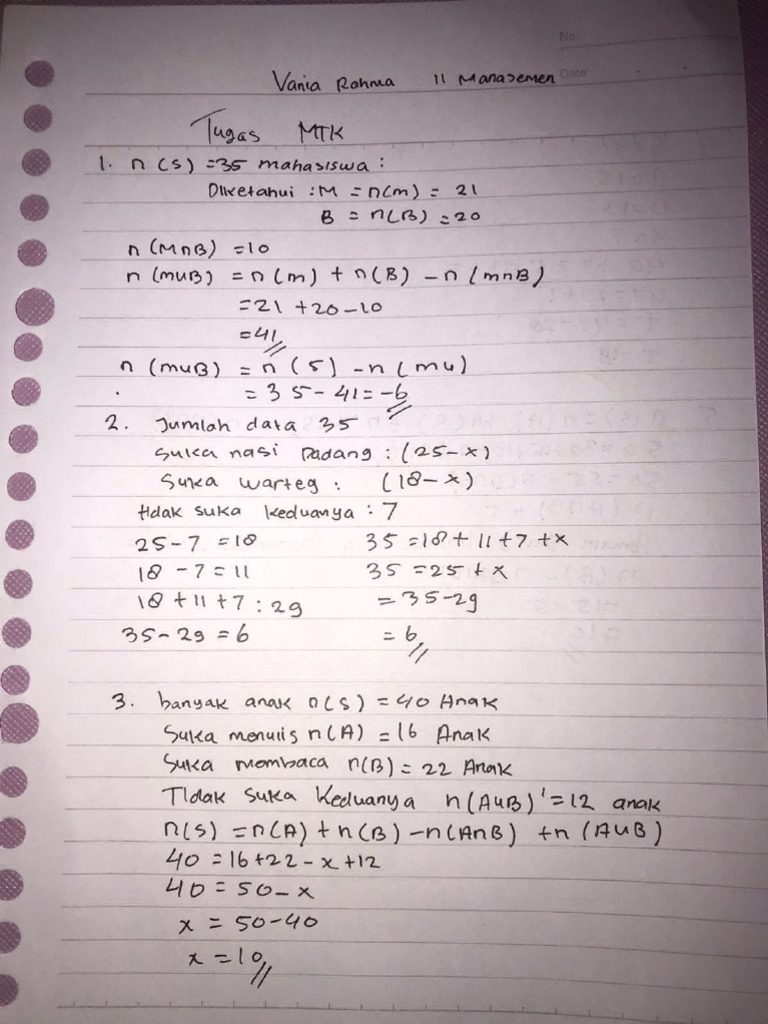 No:
Date
Vania Rahma 11 Manajemen
Tugas MTK
1. n (S) = 35 mahasiswa :
Diketahui : M = n(m) = 21
B = n(B) = 20
n (MnB) = 10
n (muB) = n (m) + n (B) - n (mnB)
= 21 + 20 - 10
= 41
n (muB) = n (S) - n (mu)
= 35 - 41 = -6
2. Jumlah data 35
Suka nasi Padang : (25 - x)
Suka warteg : (18 - x)
tidak suka keduanya : 7
25 - 7 = 18 35 = 18 + 11 + 7 + x
18 - 7 = 11 35 = 25 + x
18 + 11 + 7 : 29 = 35 - 29
35 - 29 = 6 = 6
3. banyak anak n(S) = 40 Anak
Suka menulis n(A) = 16 Anak
Suka membaca n(B) = 22 Anak
Tidak suka keduanya n(AuB)' = 12 anak
n(S) = n(A) + n(B) - n(AnB) + n (AuB)
40 = 16 + 22 - x + 12
40 = 50 - x
x = 50 - 40
x = 10